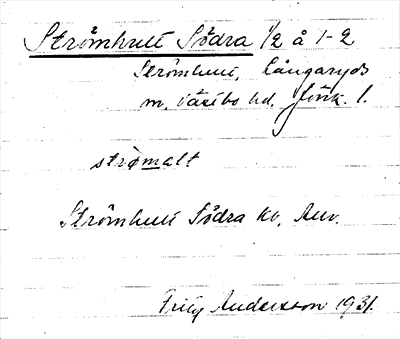 Strömhult Södra 1/2 å 1-2
Strömhult, Långaryds
m. Västbo hd, Jönk. l.
strømalt
Strömhult Södra kv.
Fritz Andersson 1931.